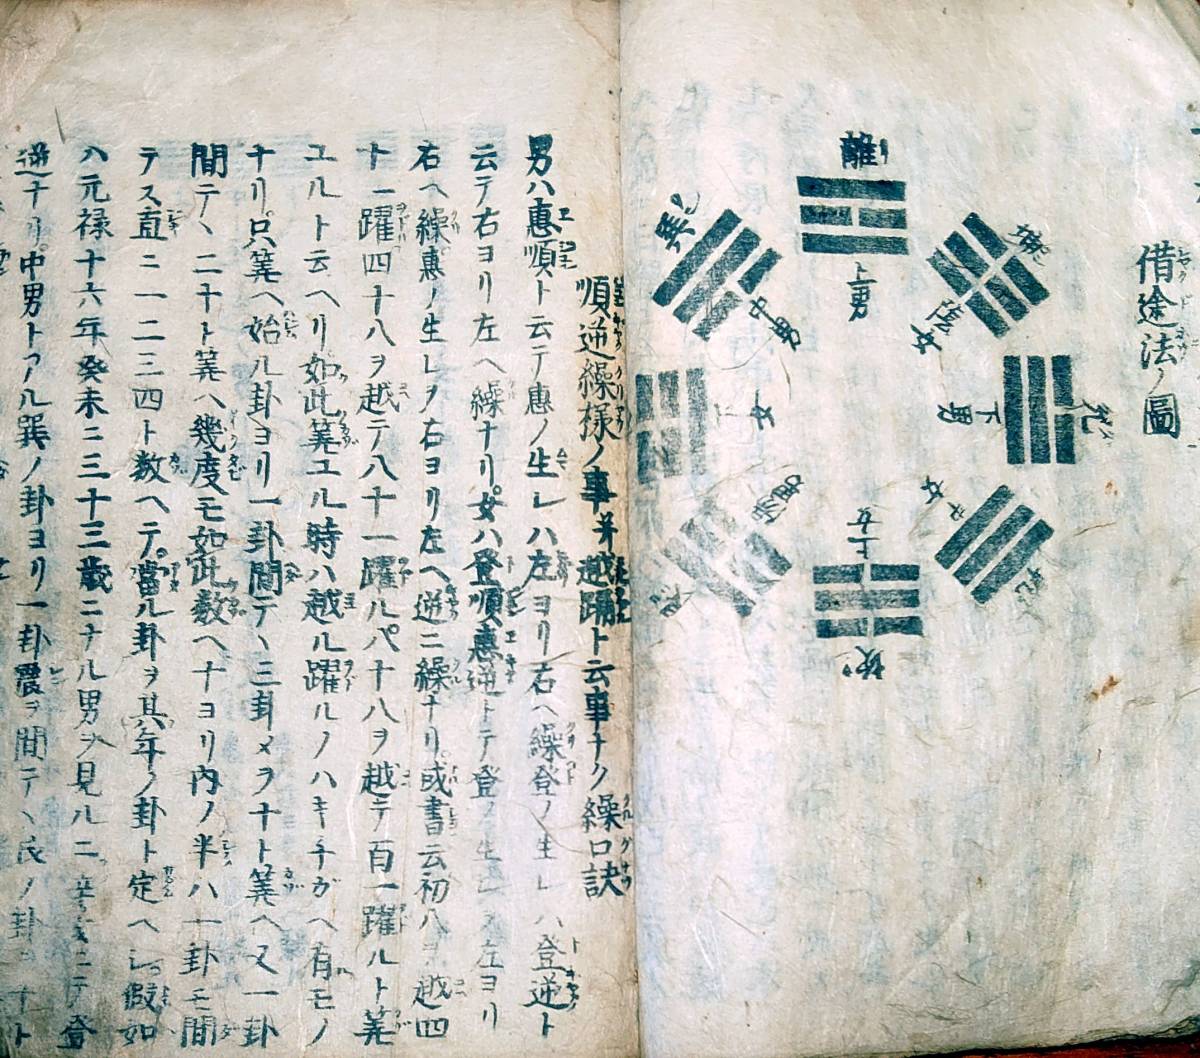 借途法ノ圖
離
坤
上男
中男
下男
上女
中女
順逆繰様ノ事并越踊ト云事ナク繰口訣
男ハ惠順ト云テ惠ノ生レハ左ヨリ右ヘ繰登ノ生レハ登逆ト
云テ右ヨリ左ヘ繰ナリ女ハ登順惠逆トテ登ノ生レヲ左ヨリ
右ヘ繰惠ノ生レヲ右ヨリ左ヘ逆ニ繰ナリ或書云初八ヲ越四
ト一躍四十八ヲ越テ八十一躍ルパ十八ヲ越テ百一躍ルト筭
ユルト云ヘリ如此筭エル時ハ越ル躍ルノハキチガヘ有モノ
ナリ只筭ヘ始ル卦ヨリ一卦間テヽ三卦メヲ十ト筭ヘ又一卦
間テヽ二十ト筭ヘ幾度モ如此数ヘ十ヨリ内ノ半ハ一卦モ間
テス直ニ一二三四ト数ヘテ當ル卦ヲ其年ノ卦ト定ヘシ假如
ハ元禄十六年癸未ニ三十三歳ニナル男ヲ見ルニ 登
逆ナリ中男トアル巽ノ卦ヨリ一卦震ヲ間テヽ艮ノ卦ヲ十ト